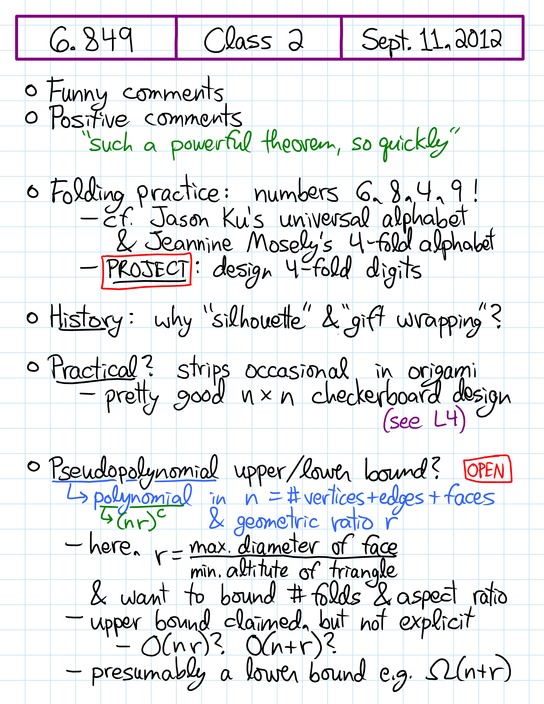 6.849 Class 2 Sept. 11, 2012
○ Funny comments
○ Positive comments
"such a powerful theorem, so quickly"
○ Folding practice: numbers 6, 8, 4, 9!
– cf. Jason Ku's universal alphabet
& Jeannine Mosely's 4-fold alphabet
– PROJECT: design 4-fold digits
○ History: why "silhouette" & "gift wrapping"?
○ Practical? strips occasional in origami
– pretty good n×n checkerboard design
(see L4)
○ Pseudopolynomial upper/lower bound? OPEN
↳ polynomial in n = #vertices+edges+faces
↳ (nr)^c & geometric ratio r
– here, r = max. diameter of face
min. altitute of triangle
& want to bound #folds & aspect ratio
– upper bound claimed, but not explicit
– O(nr)? O(n+r)?
– presumably a lower bound e.g. Ω(n+r)